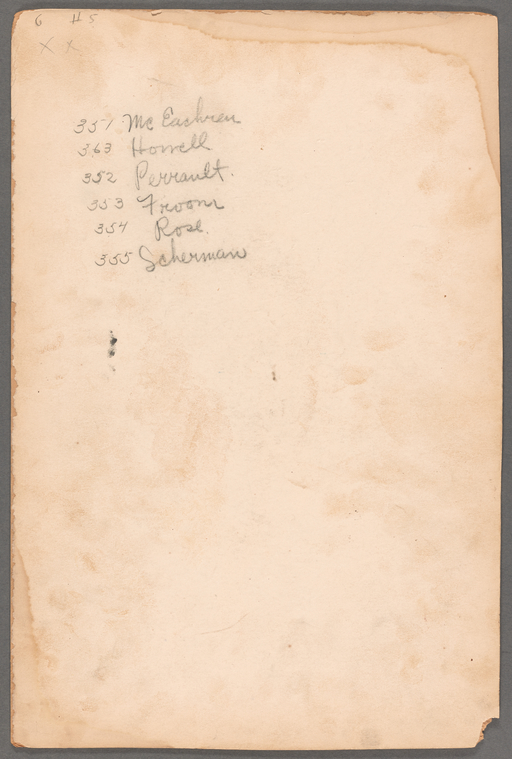 6 H5
x x
351 McEachren
363 Howell
352 Perrault.
353 Froom
354 Rose.
355 Scherman